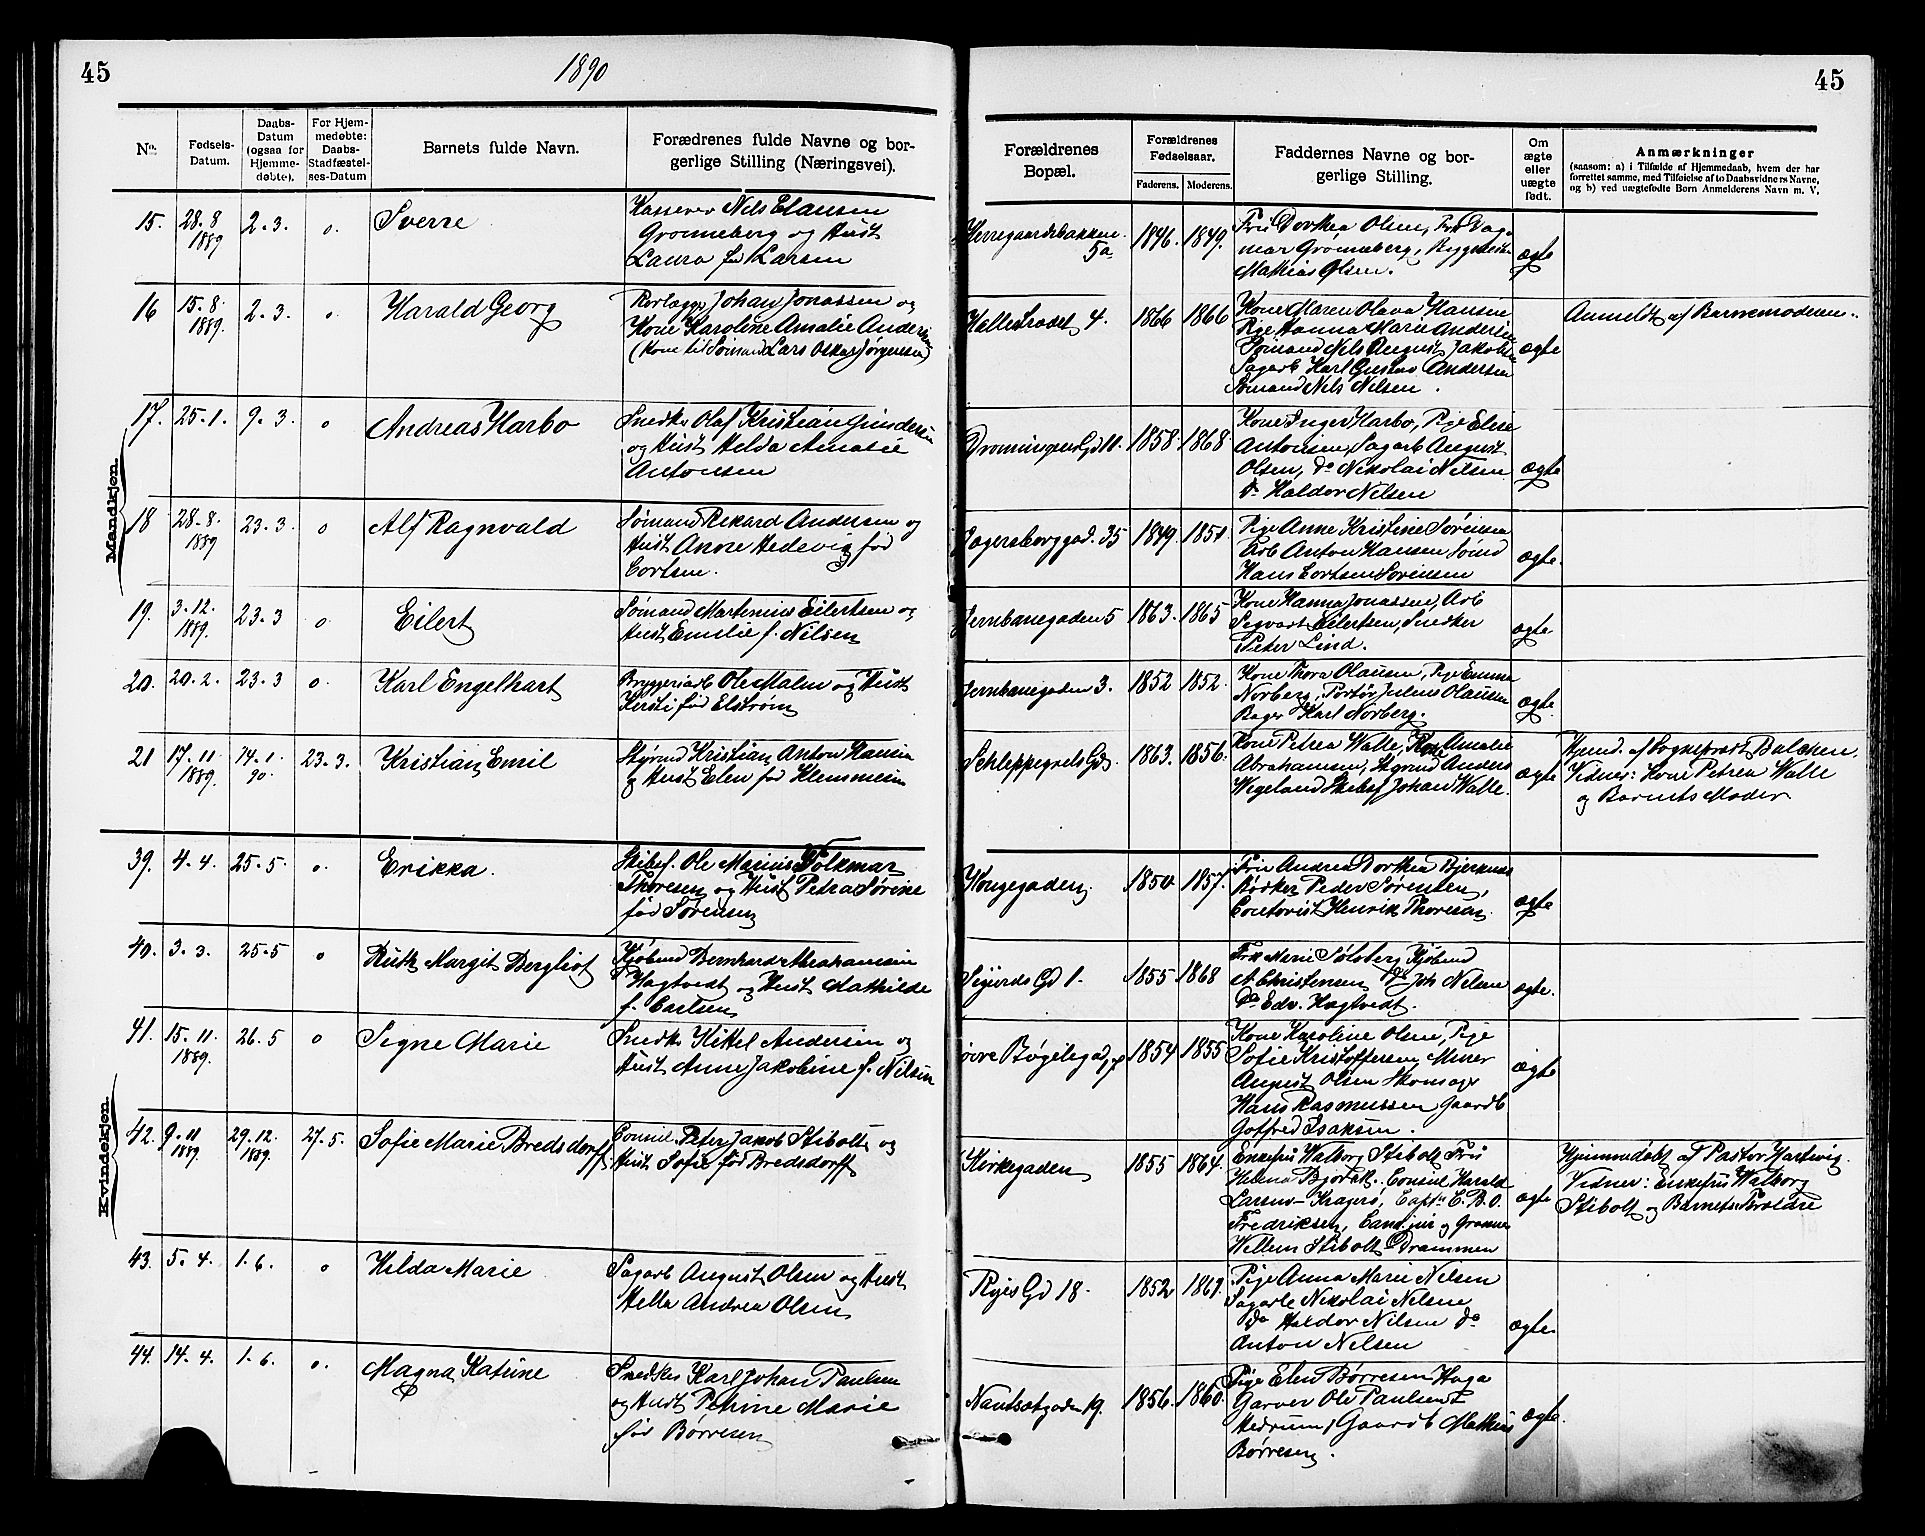 45
1890
45
No.
Fødsels-Datum.
Daabs-Datum (ogsaa for Hjemmedøbte).
For Hjemmedøbte: Daabs-Stadfæstelses-Datum
Barnets fulde Navn.
Forældrenes fulde Navne og borgerlige Stilling (Næringsvei).
Forældrenes Bopæl.
Forældrenes Fødselsaar.
Faderens. Moderens.
Faddernes Navne og borgerlige Stilling.
Om ægte eller uægte født.
Anmærkninger
(saasom: a) i Tilfælde af Hjemmedaab, hvem der har
forrettet samme, med Tilføielse af to Daabsvidners Navne,
og b) ved uægtefødte Børn Anmelderens Navn m. V.
Mandkjøn.
15. 28-8 1889 2-3. o. Sverre
Kasserer Nils Clausen
Grønneberg og Hust
Laura f. Larsen
Herregaardsbakken 5a 1846. 1849.
Fru Dorthea Olsen, Frk Dag-
mar Grønneberg,
Mathias Olsen.
ægte
16 15-8 1889. 2-3. o Harald Georg
Rørlægger Johan Jonassen og
Kone Karoline Amalie Andersen
(Kone til Sømand Lars Oskar Jørgensen)
4. 1866 1866
Kone Maren Olava Hansen
Pige Hanna Marie Andersen
Sømand Nils August Jakobsen
Sagarb Karl Gustav Andersen
Sømand Nils Nilsen.
ægte
Anmeldt af Barnemoderen.
17. 25-1. 9-3. o Andreas Harbo
Snedker Olaf Kristian Gundersen
og Hust Helda Amalie
Antonsen
Dronningens Gd 11. 1858. 1868.
Kone Inger Harbo, Pige Elise
Antonsen, Sagarb August
Olsen, do Nikolai Nilsen
do Haldor Nilsen
ægte
18 28-8. 1889 23-3. o Alf Ragnvald
Sømand Rikard Andersen og
Hust Anne Hedevig fød
Cortsen.
35 1849. 1851.
Pige Anne Kristine Sørensen
Arb Anton Hansen, Sømd
Hans Cortsen Sørensen
ægte.
19. 3-12. 1889. 23-3 o. Eilert
Sømand Martinius Eilertsen og
Hust Emilie f. Nilsen
Jernbanegaden 5 1863. 1865
Kone Hanna Jonassen, Arb
Segvart Eilertsen, Snedker
Peter Lind.
ægte
20. 20-2. 23-3 o. Karl Engelhart
Bryggeriarb Ole Malm og Hust
Kersti fød Elstrøm
Jernbanegaden 3. 1852 1852.
Kone Thora Olausen, Pige Emma
Norberg, Portør Julius Olausen
Bager Karl Norberg.
ægte
21 17-11 1889. 14-1. 90. 23-3. Kristian Emil
Styrmd Kristian Anton Hansen
og Hust Elen fød Klemmesen
Schleppegrels Gd. 1863. 1856.
Kone Petrea Walle, Amalie
Abrahamsen, Styrmd Anders
Wegeland Skibsf Johan Walle.
ægte
Hjemd. af Sogneprest Balchen.
Vidner: Kone Petrea Walle
og Barnets Moder.
Kvindekjøn.
39. 4-4. 25-5. o. Erikka.
Skibsf. Ole Marius Folkmar
Thoresen og Hust Petra Sørine
fød Sørensen
Kongegaden. 1850 1857.
Fru Andrea Dorthea Bjerknæs
Bødker Peder Sørensen,
Contorist Henrik Thoresen.
ægte
40. 3-3. 25-5 o Ruth Margit Bergliot
Kjøbmd Bernhard Abrahamsen
Hagtvedt og Hust Mathilde
f. Carlsen
Sigurds Gd 1. 1855 1868
Frk Marie Sølsberg, Kjøbmd
A Christensen do Joh Nilsen
do Edv. Hagtvedt.
ægte.
41. 15-11. 1889. 26-5 o Signe Marie
Snedk Kittel Andersen og
Hust Anne Jakobine f. Nilsen
Øvre Bøgelegad 1854 1855
Kone Karoline Olsen, Pige
Sofie Kristoffersen, Murer
August Olsen Skomager
Hans Rasmussen Gaardb
Gotfred Isaksen.
ægte
42. 9-11 1889. 29-12. 1889. 27-5. Sofie Marie Bredsdorff
Consul Peter Jakob Stibolt og
Hust Sofie fød Bredsdorff
Kirkegaden 1855 1864.
Enkefru Walborg Stibolt Fru
Helena Bjørck. Consul Harald
Larsen - Kragerø, Capt. C. B. O.
Fredriksen, Cand. jur og
Willum Stibolt Drammen
ægte
Hjemmedøbt af Pastor Hartvig.
Vidner: Enkefru Walborg
Stibolt og Barnets Forældre
43. 5-4. 1-6. o Hilda Marie
Sagarb August Olsen og Hust
Helle Andrea Olsen
Ryes Gd 18. 1852 1861.
Pige Anna Marie Nilsen
Sagarb Nikolai Nilsen
do Haldor Nilsen do
Anton Nilsen
ægte
44. 14-4. 1-6. o. Magna Katrine
Snedker Karl Johan Paulsen
og Hust Petrine Marie
fød Børresen
Nansetgaden 19. 1856. 1860.
Pige Elen Børresen Haga
Garver Ole Paulsen
Hedrum, Gaardb Mathias
Børresen.
ægte.